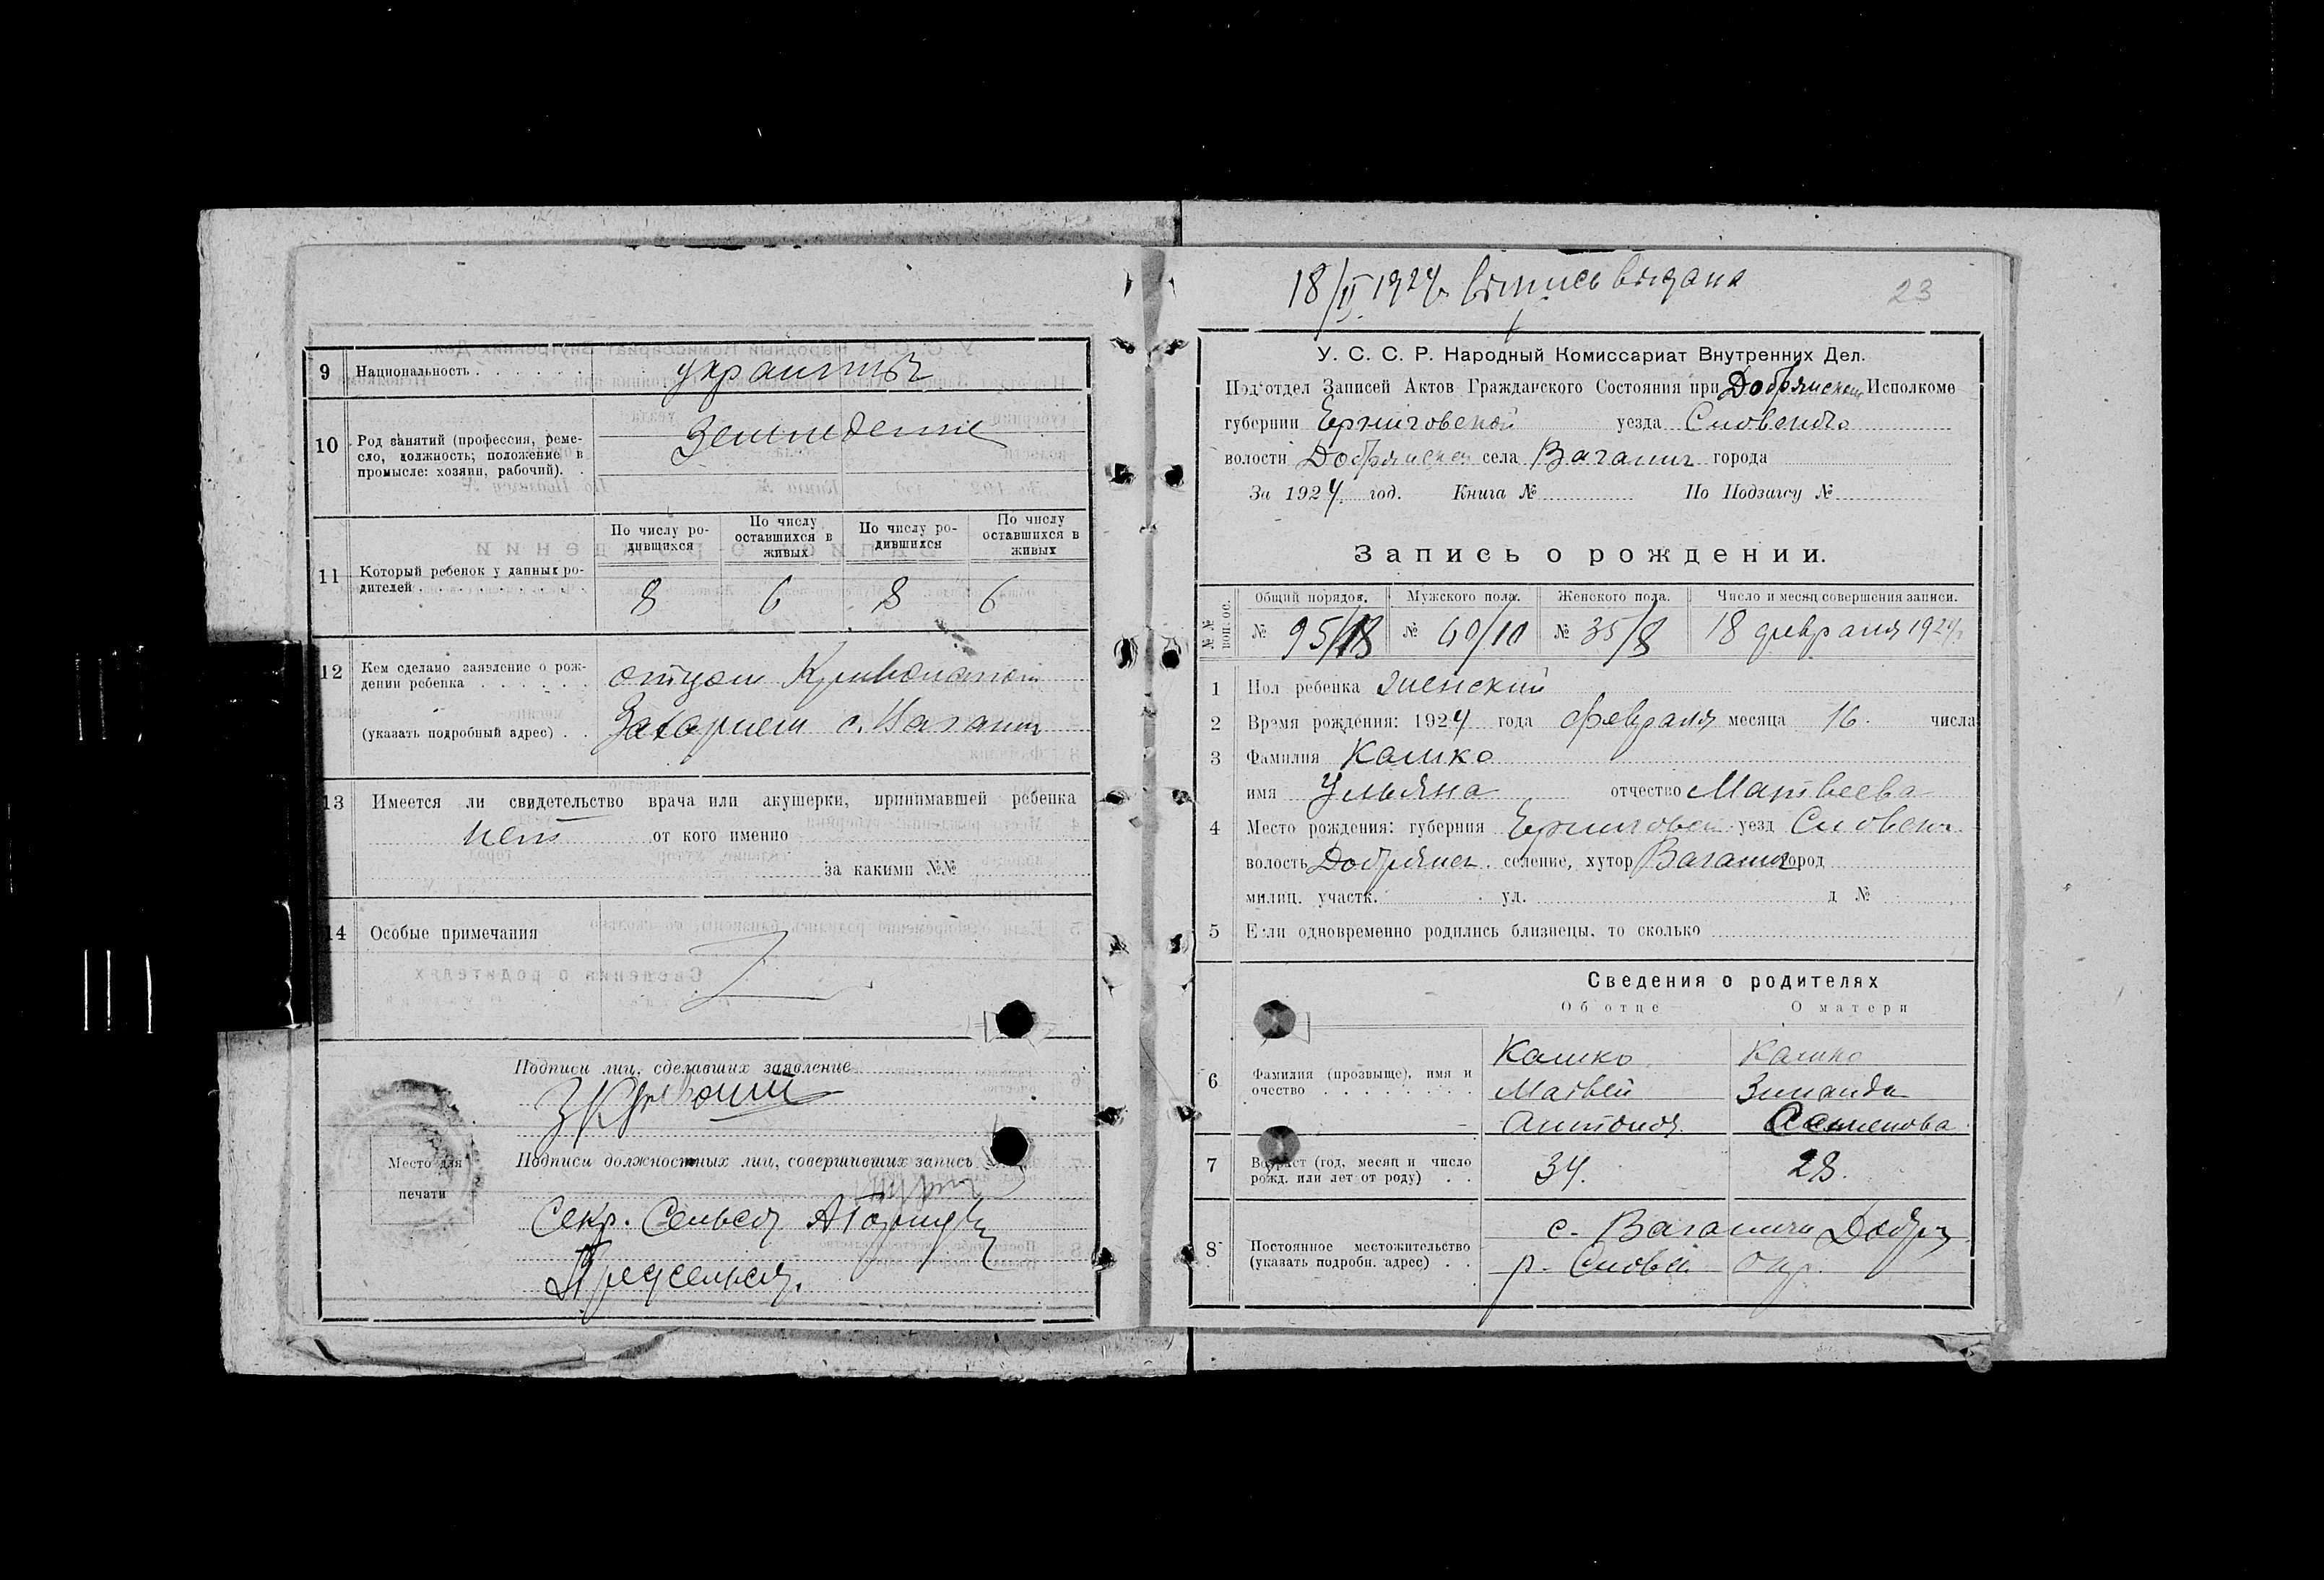 9 Национальность . . . . . . украинцы
10 Род занятий (профессия, реме-
сло, должность; положение в
промысле: хозяин, рабочий). .
Земледелие
По числу ро-
дившихся
По числу
оставшихся в
живых
По числу ро-
дившихся
По числу
оставшихся в
живых
11 Который ребенок у данных ро-
дителей . . . . . . . . . .
8 6 8 6
12 Кем сделано заявление о рож-
дении ребенка . . . . . .
(указать подробный адрес) . .
отцом
Захарием с. Ваганич
13 Имеется ли свидетельство врача или акушерки, принимавшей ребенка
нет от кого именно
за какими №№
14 Особые примечания
Подписи лиц, сделавших заявление
Подписи должностных лиц, совершивших запись
Место для
печати
Секр. Сельсов
Предсельсов.
18/II 1924 г. выпись выдана
23
У. С. С. Р. Народный Комиссариат Внутренних Дел.
Под'отдел Записей Актов Гражданского Состояния при Добрянском Исполкоме
губернии Черниговской уезда Сновского
волости Добрянской села Ваганич города
За 1924 год. Книга № По Подзагсу №
Запись о рождении.
№№ поп. ос.
Общий порядок. Мужского пола. Женского пола. Число и месяц совершения записи.
№ 95/18 № 60/10 № 35/8 18 февраля 1924 г.
1 Пол ребенка женский
2 Время рождения: 1924 года февраля месяца 16 числа
3 Фамилия Калико
имя Ульяна отчество Матвеева
4 Место рождения: губерния Черниговской уезд Сновск.
волость Добрянск. селение, хутор Ваганич город
милиц. участк. ул. д №
5 Если одновременно родились близнецы, то сколько
Сведения о родителях
Об отце О матери
6 Фамилия (прозвыще), имя и
очество . . . . . . . .
Калико Калико
Матвей Зинаида
Антонов. Семенова
7 Возраст (год, месяц и число
рожд. или лет от роду) . .
34. 28.
8 Постоянное местожительство
(указать подробн. адрес) . .
с. Ваганичи Добр.
р. Сновск окр.